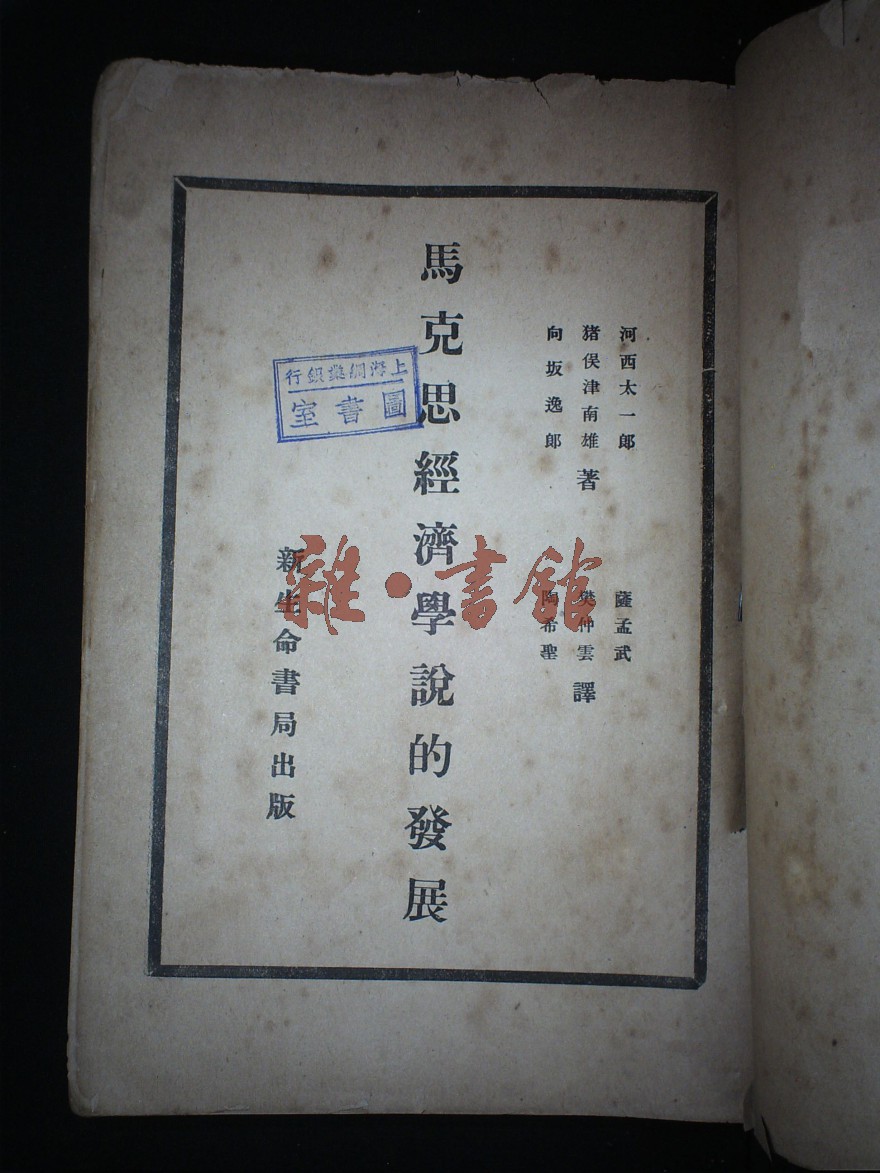 河西太一郎
猪俣津南雄 著
向坂逸郎
薩孟武
樊仲雲 譯
陶希聖
馬克思經濟學說的發展
新生命書局出版
上海綢業銀行
圖書室
雜·書館